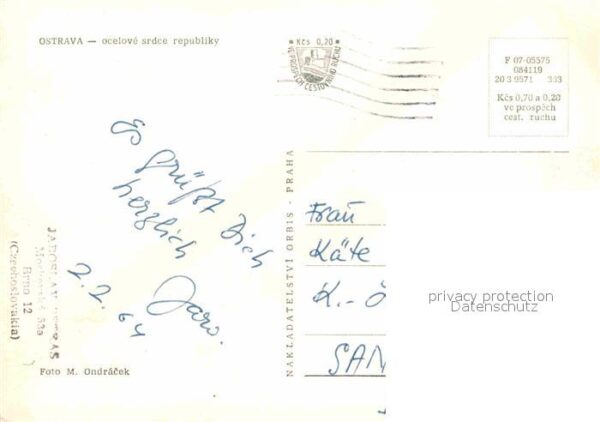 OSTRAVA — ocelové srdce republiky
Kčs 0,20
VE PROSPĚCH CESTOVNÍHO RUCHU
F 07-05575
084119
20 3 9571 303
Kčs 0,70 a 0,20
ve prospěch
cest. ruchu
Es grüßt Dich
herzlich
Jaro.
2.2.64
NAKLADATELSTVÍ ORBIS - PRAHA
Frau
Käte
K.-Ö
SAN
privacy protection
Datenschutz
JAROSLAV
33a
Brno 12
(Czechoslovakia)
Foto M. Ondráček